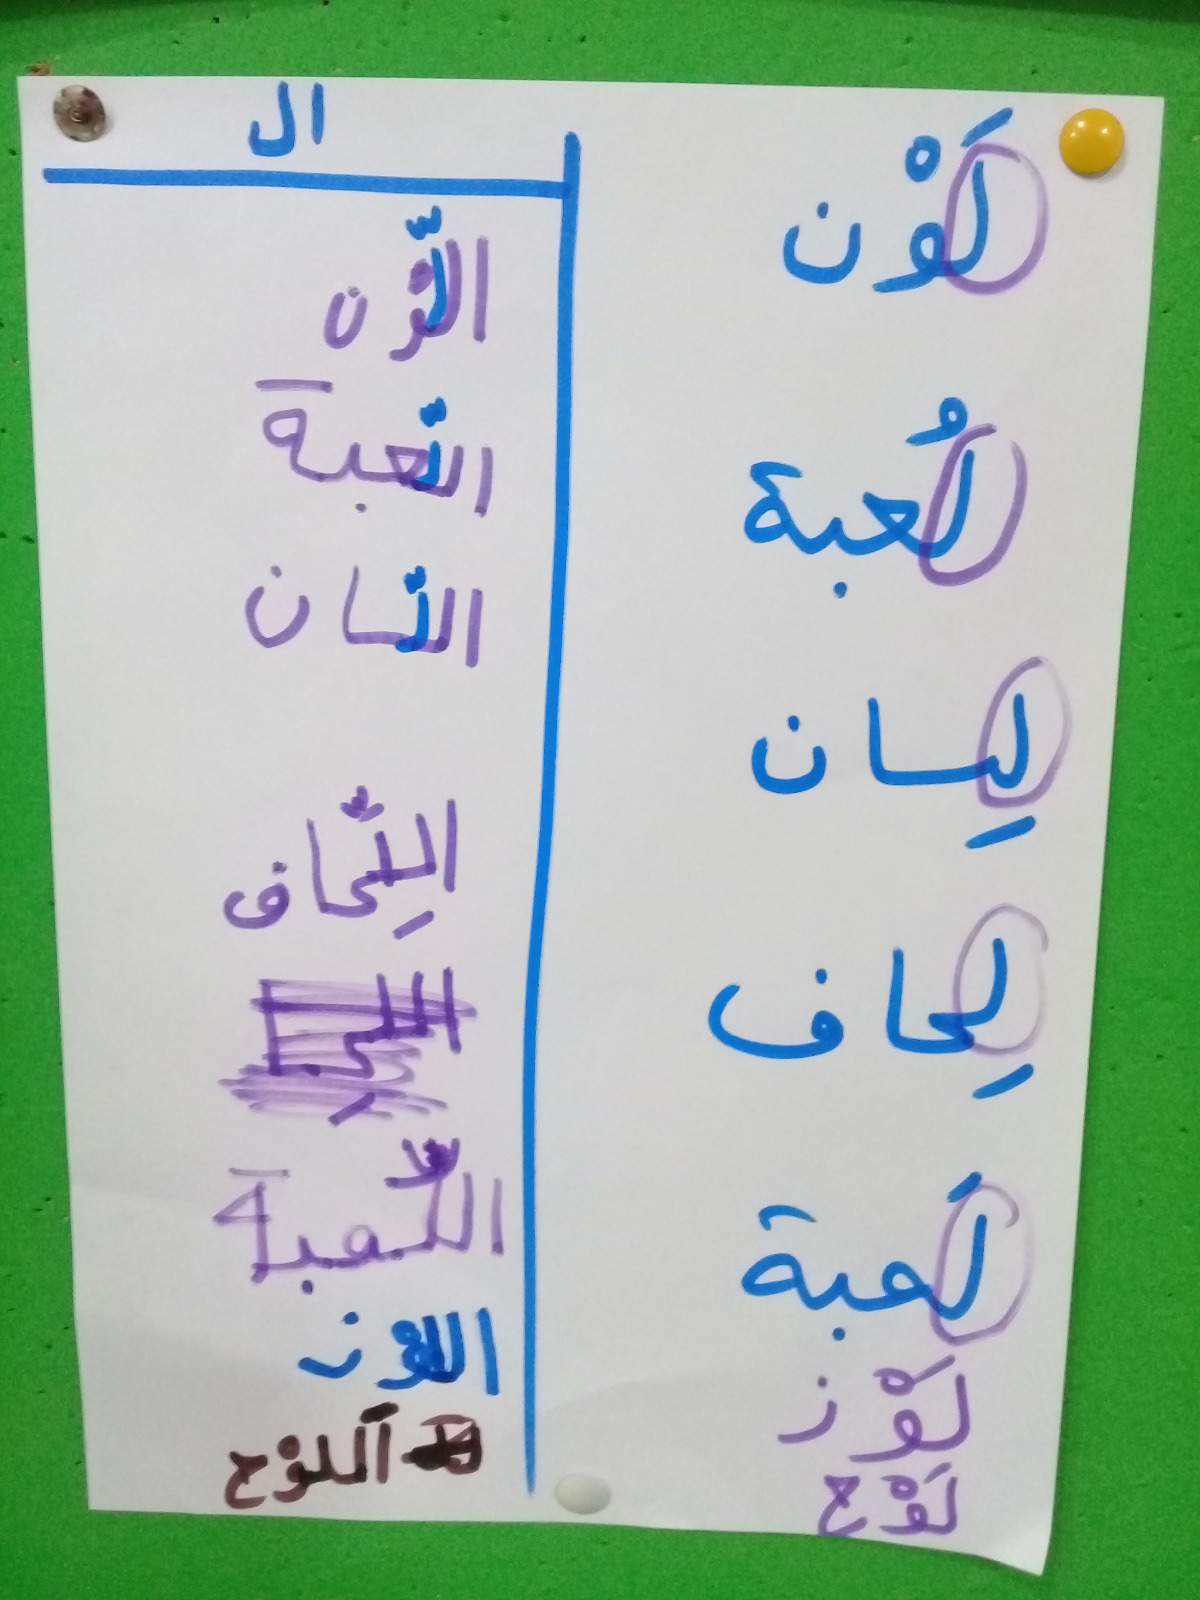 ال
لَوْن
لُعبة
لِسان
لِحاف
لَعبة
لَوْز
لَوْح
اللّوْن
اللّعبة
اللّسان
اللِّحاف
اللَّعبة
اللوز
اَللوْح